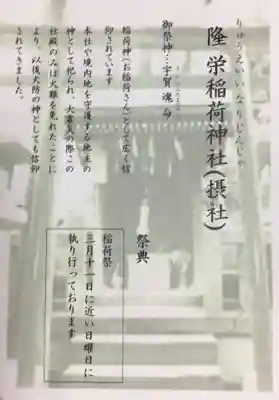 りゅうえいいなりじんじゃ
隆栄稲荷神社(摂社)
御祭神…宇賀魂命
稲荷神(お稲荷さん)として広く信
仰されています
本社や境内地を守護する地主の
神として祀られ、大震災の際この
社殿のみは火難を免れたことに
より、以後火防の神としても信仰
されてきました。
祭典
稲荷祭
三月十一日に近い日曜日に
執り行っております